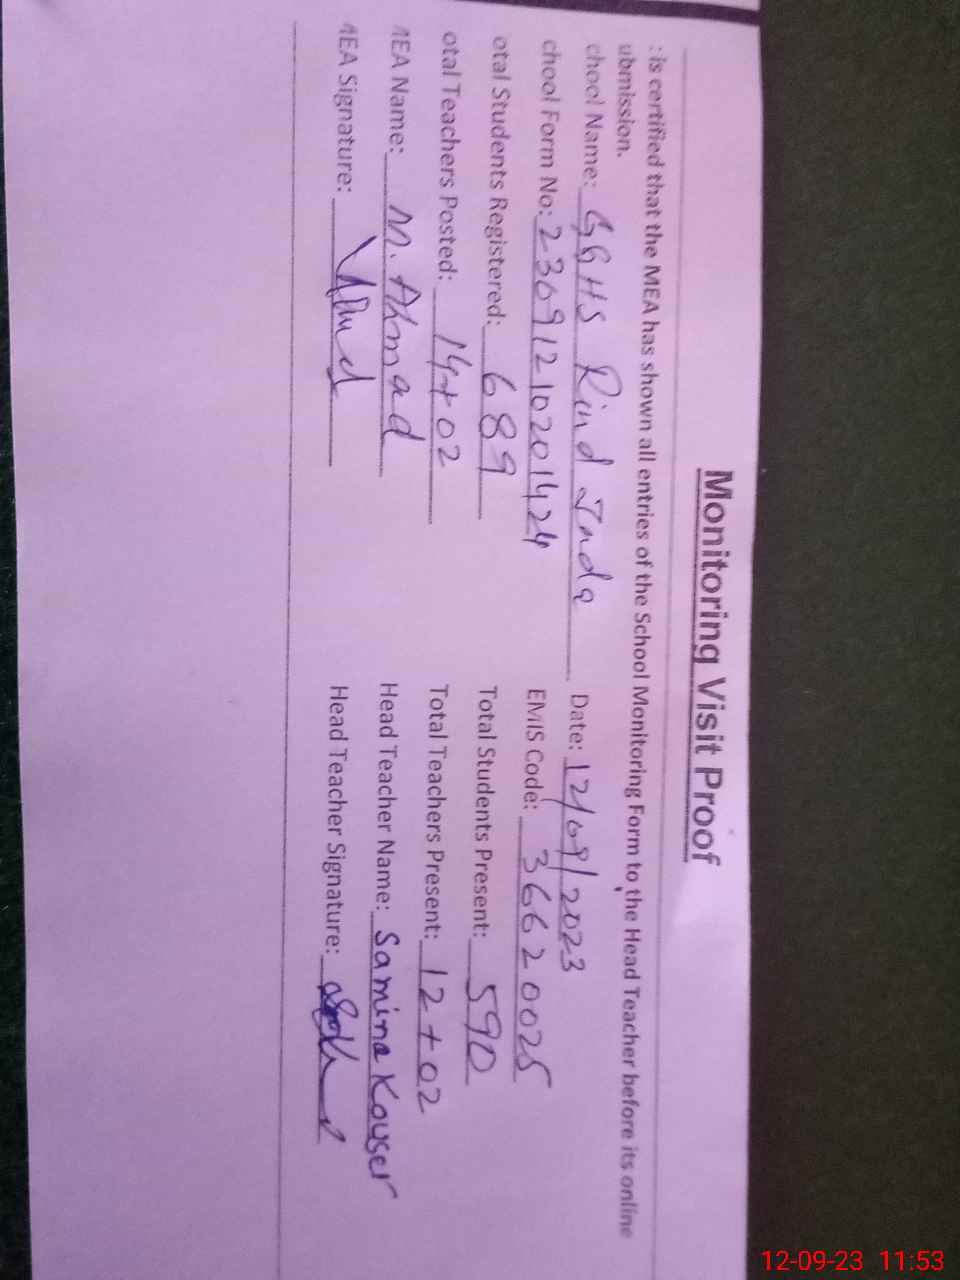 Monitoring Visit Proof
: is certified that the MEA has shown all entries of the School Monitoring Form to the Head Teacher before its online
ubmission.
chool Name: GGHS Rind Jada Date: 12/09/2023
chool Form No: 23091210201424 EMIS Code: 36620025
otal Students Registered: 689 Total Students Present: 590
otal Teachers Posted: 14+02 Total Teachers Present: 12+02
MEA Name: M. Ahmad Head Teacher Name: Samina Kouser
MEA Signature: Head Teacher Signature:
12-09-23 11:53